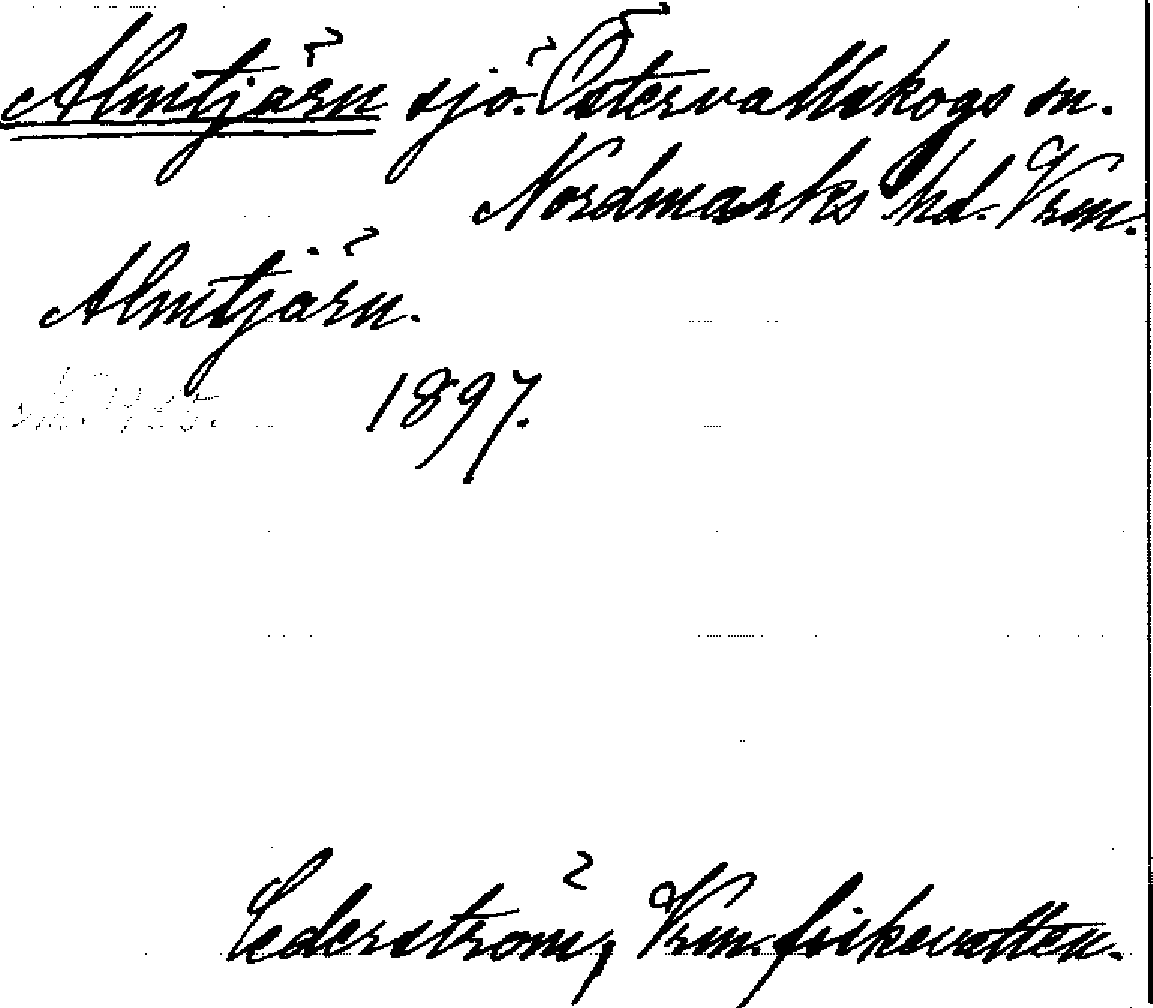 Almtjärn sjö. Östervallskogs sn.
Nordmarks hd. Vrm.
Almtjärn.
1897.
Cederström, Vrm. fiskevatten.